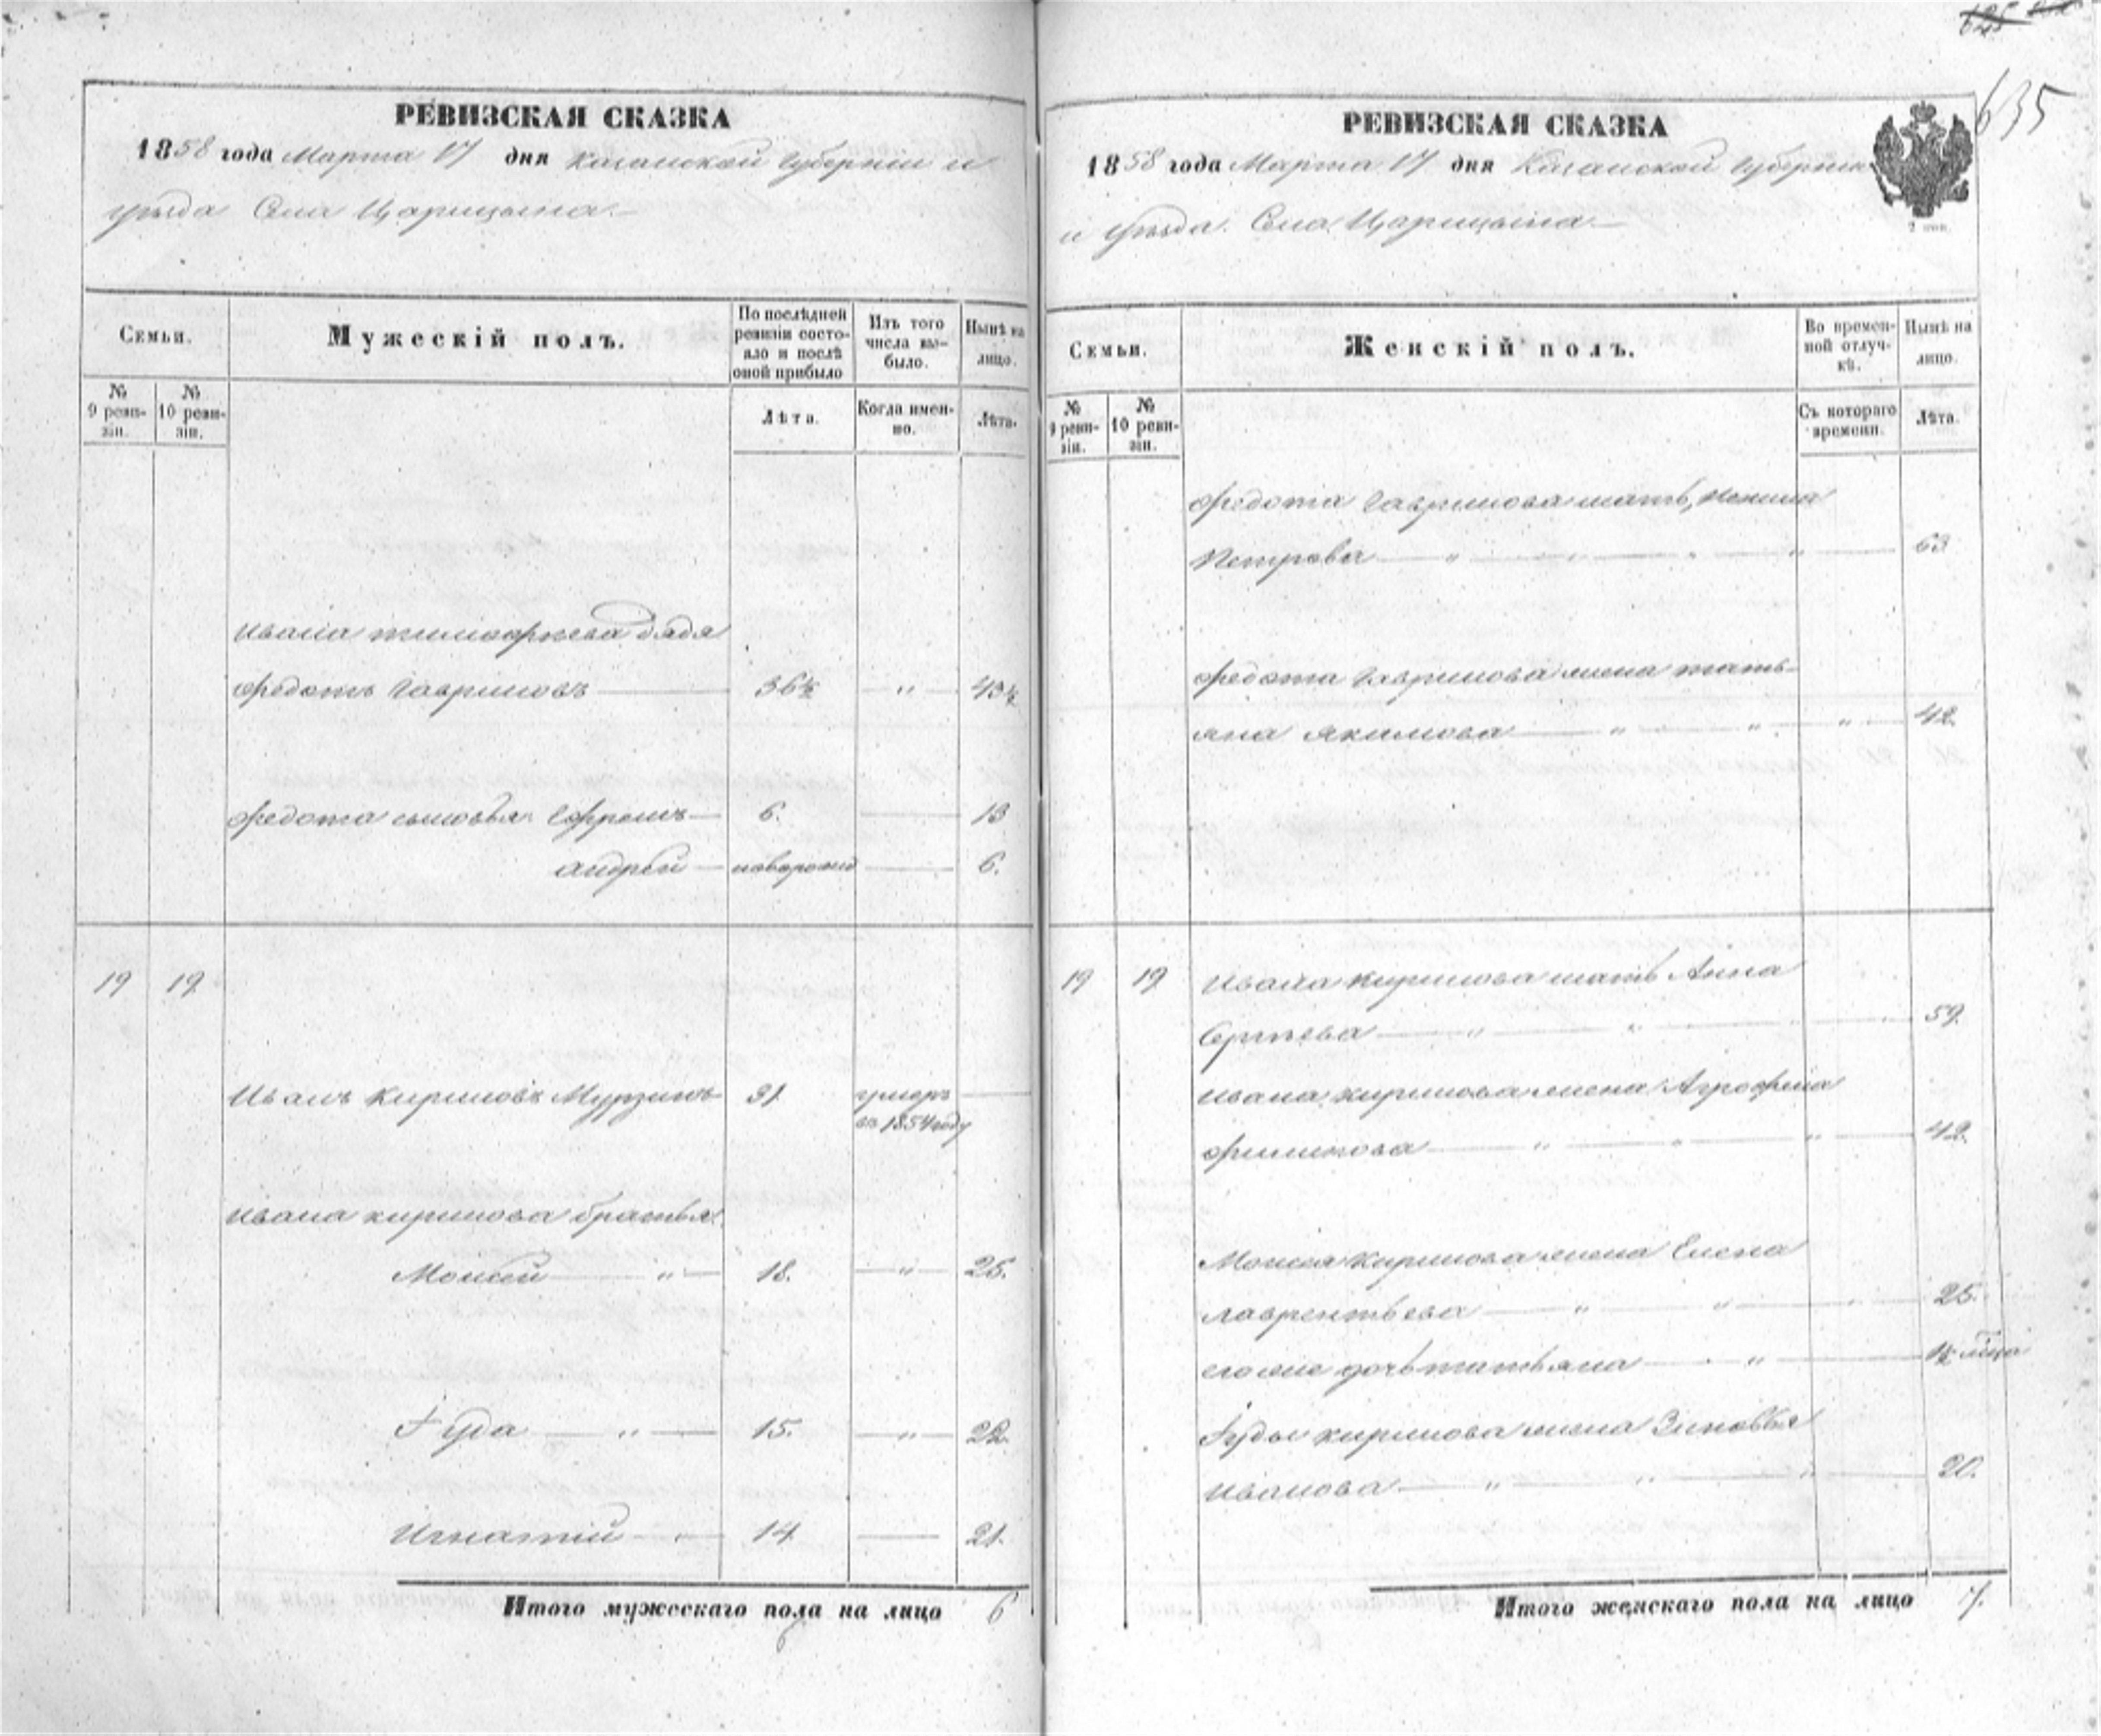 635
РЕВИЗСКАЯ СКАЗКА
1858 года Марта 17 дня Казанской Губернии и
уѣзда Села Царицына.
Семьи.
Мужескій полъ.
По послѣдней ревизіи состо-
яло и послѣ
оной прибыло
Изъ того
числа вы-
было.
Нынѣ на
лицо.
№
9 реви-
зіи.
№
10 реви-
зіи.
Лѣта.
Когда имен-
но.
Лѣта.
Ивана Тимофѣева дядя
Федотъ Гавриловъ 36½ " 43½
Федота сыновья Ефремъ 6. 13
Андрей новорожд 6.
19 19
Иванъ Кириловъ Мурзинъ 31 умеръ
въ 1854 году
Ивана Кирилова братья
Моисей " 18. " 25.
Іуда " 15. " 22.
Игнатій " 14 21.
Итого мужескаго пола на лицо 6
РЕВИЗСКАЯ СКАЗКА
1858 года Марта 17 дня Казанской Губерніи
и Уѣзда. Села Царицына
Семьи.
Женскій полъ.
Во времен-
ной отлуч-
кѣ.
Нынѣ на
лицо.
№
9 реви-
зіи.
№
10 реви-
зіи.
Съ котораго
времени.
Лѣта.
Федота Гаврилова мать,
Петрова " " " " 63
Федота Гаврилова жена Тать-
яна Якимова " " " 42.
19 19 Ивана Кирилова мать Анна
Сергѣева " " 59.
Ивана Кирилова жена Агрофена
Филипова " " " 42.
Моисея Кирилова жена Елена
Лаврентьева " " 25.
его же дочь Татьяна " 1½ мѣца
Іуды Кирилова жена Зиновья
Иванова " " " 20.
Итого женскаго пола на лицо 7.